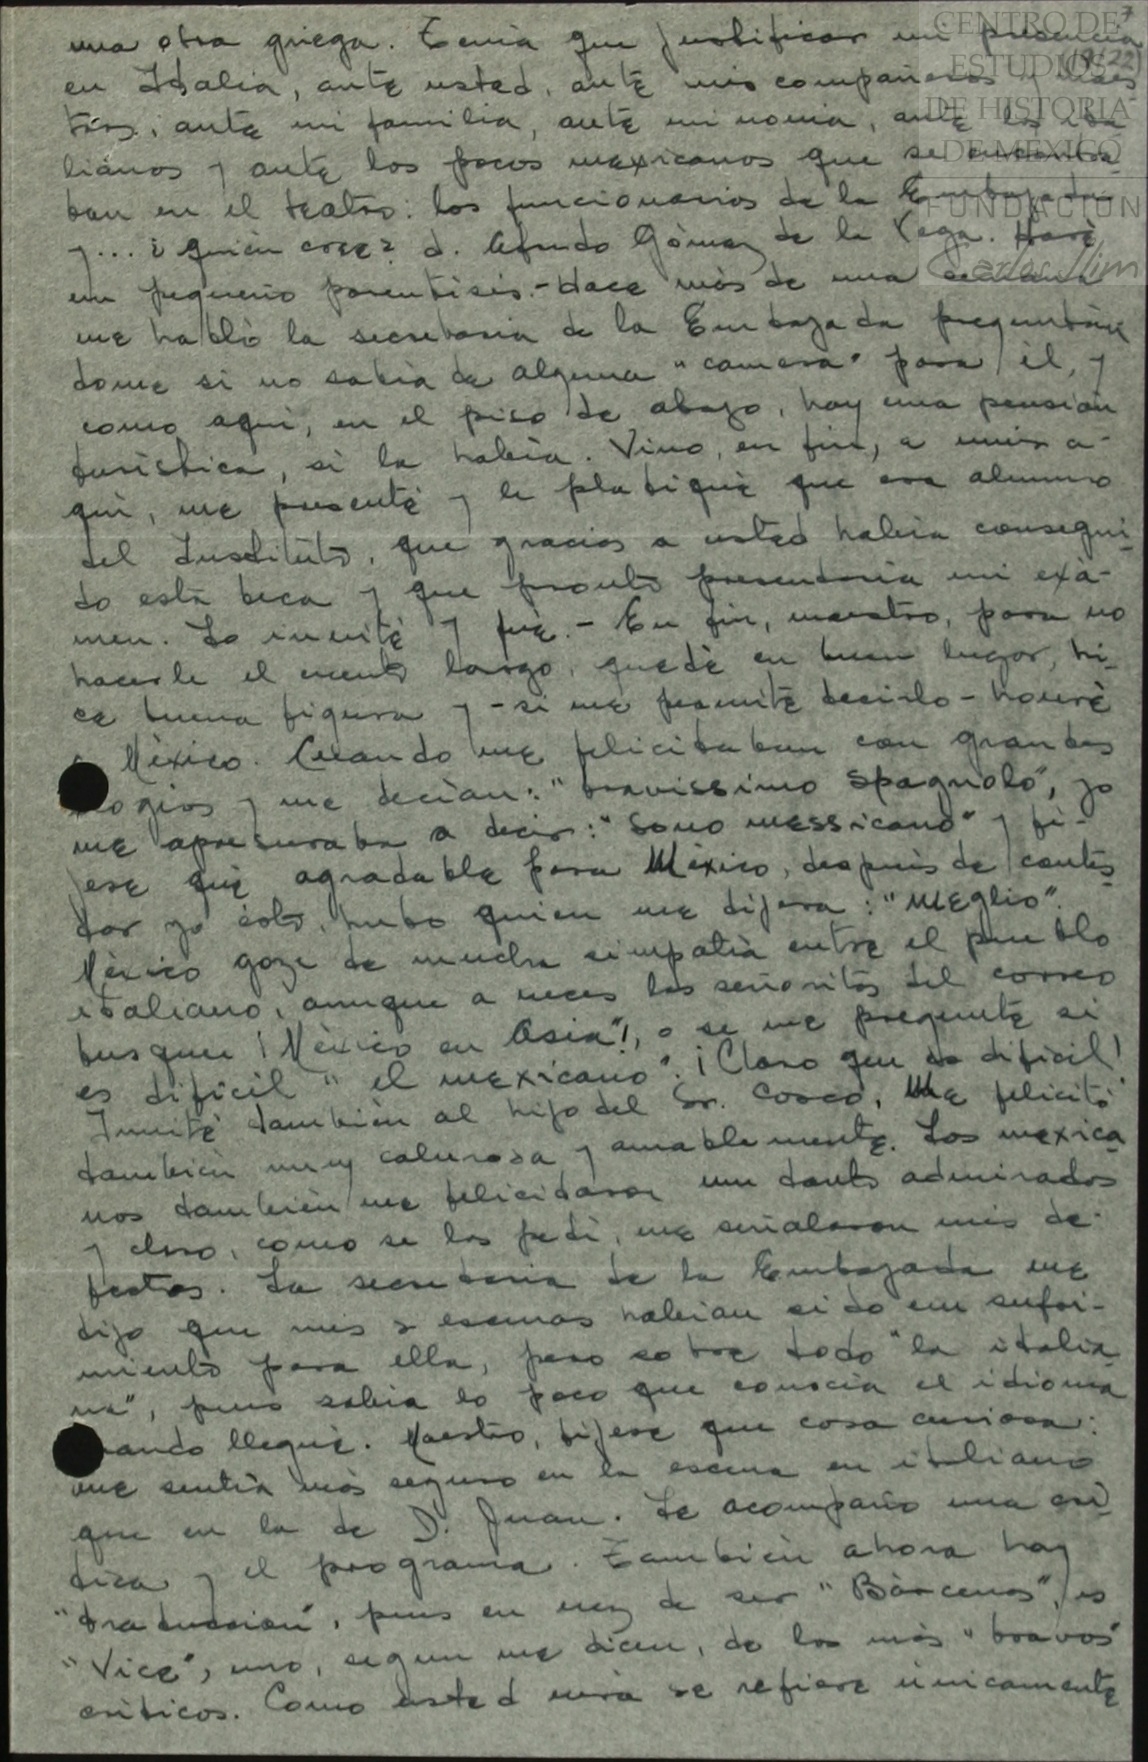 CENTRO DE
ESTUDIOS
DE HISTORIA
DE MÉXICO
FUNDACIÓN
Carlos Slim
7
(19/22)
una obra griega. Tenía que justificar mi presencia
en Italia, ante usted, ante mis compañeros y maes
tros, ante mi familia, ante mi novia, ante los ita
lianos y ante los pocos mexicanos que se encontra
ban en el teatro: los funcionarios de la Embajada
y... ¿quién cree? d. Alfredo Gómez de la Vega. Haré
un pequeño paréntisis.- Hace más de una semana
me habló la secretaria de la Embajada preguntán
dome si no sabía de alguna "camera" para él, y
como aquí, en el piso de abajo, hay una pensión
turística, si la había. Vino, en fin, a vivir a-
quí, me presenté y le platiqué que era alumno
del Instituto, que gracias a usted había consegui-
do esta beca y que pronto presentaría mi exá-
men. Lo invité y fué.- En fin, maestro, para no
hacerle el cuento largo, quedé en buen lugar, hi-
ce buena figura y -si me permite decirlo- honré
a México. Cuando me felicitaban con grandes
elogios y me decían: "bravissimo spagnolo", yo
me apresuraba a decir: "Sono messicano" y fí-
jese qué agradable para México, después de contes
tar yo ésto, hubo quien me dijera: "meglio".
México goza de mucha simpatía entre el pueblo
italiano, aunque a veces las señoritas del correo
busquen ¡"México en Asia"!, o se me pregunte si
es difícil "el mexicano". ¡Claro que es difícil!
Invité también al hijo del Sr. Me felicitó
también muy calurosa y amablemente. Los mexica
nos también me felicitaron un tanto admirados
y claro, como se los pedí, me señalaron mis de-
fectos. La secretaria de la Embajada me
dijo que mis 2 escenas habían sido un sufri-
miento para ella, pero sobre todo "la italia
na", pues sabía lo poco que conocía el idioma
cuando llegué. Maestro, fíjese que cosa curiosa:
me sentía más seguro en la escena en italiano
que en la de D. Juan. Le acompaño una crí
tica y el programa. También ahora hay
"traducción", pues en vez de ser "Bárcenas", es
"Vice", uno, según me dicen, de los más "bravos"
críticos. Como usted verá se refiere únicamente